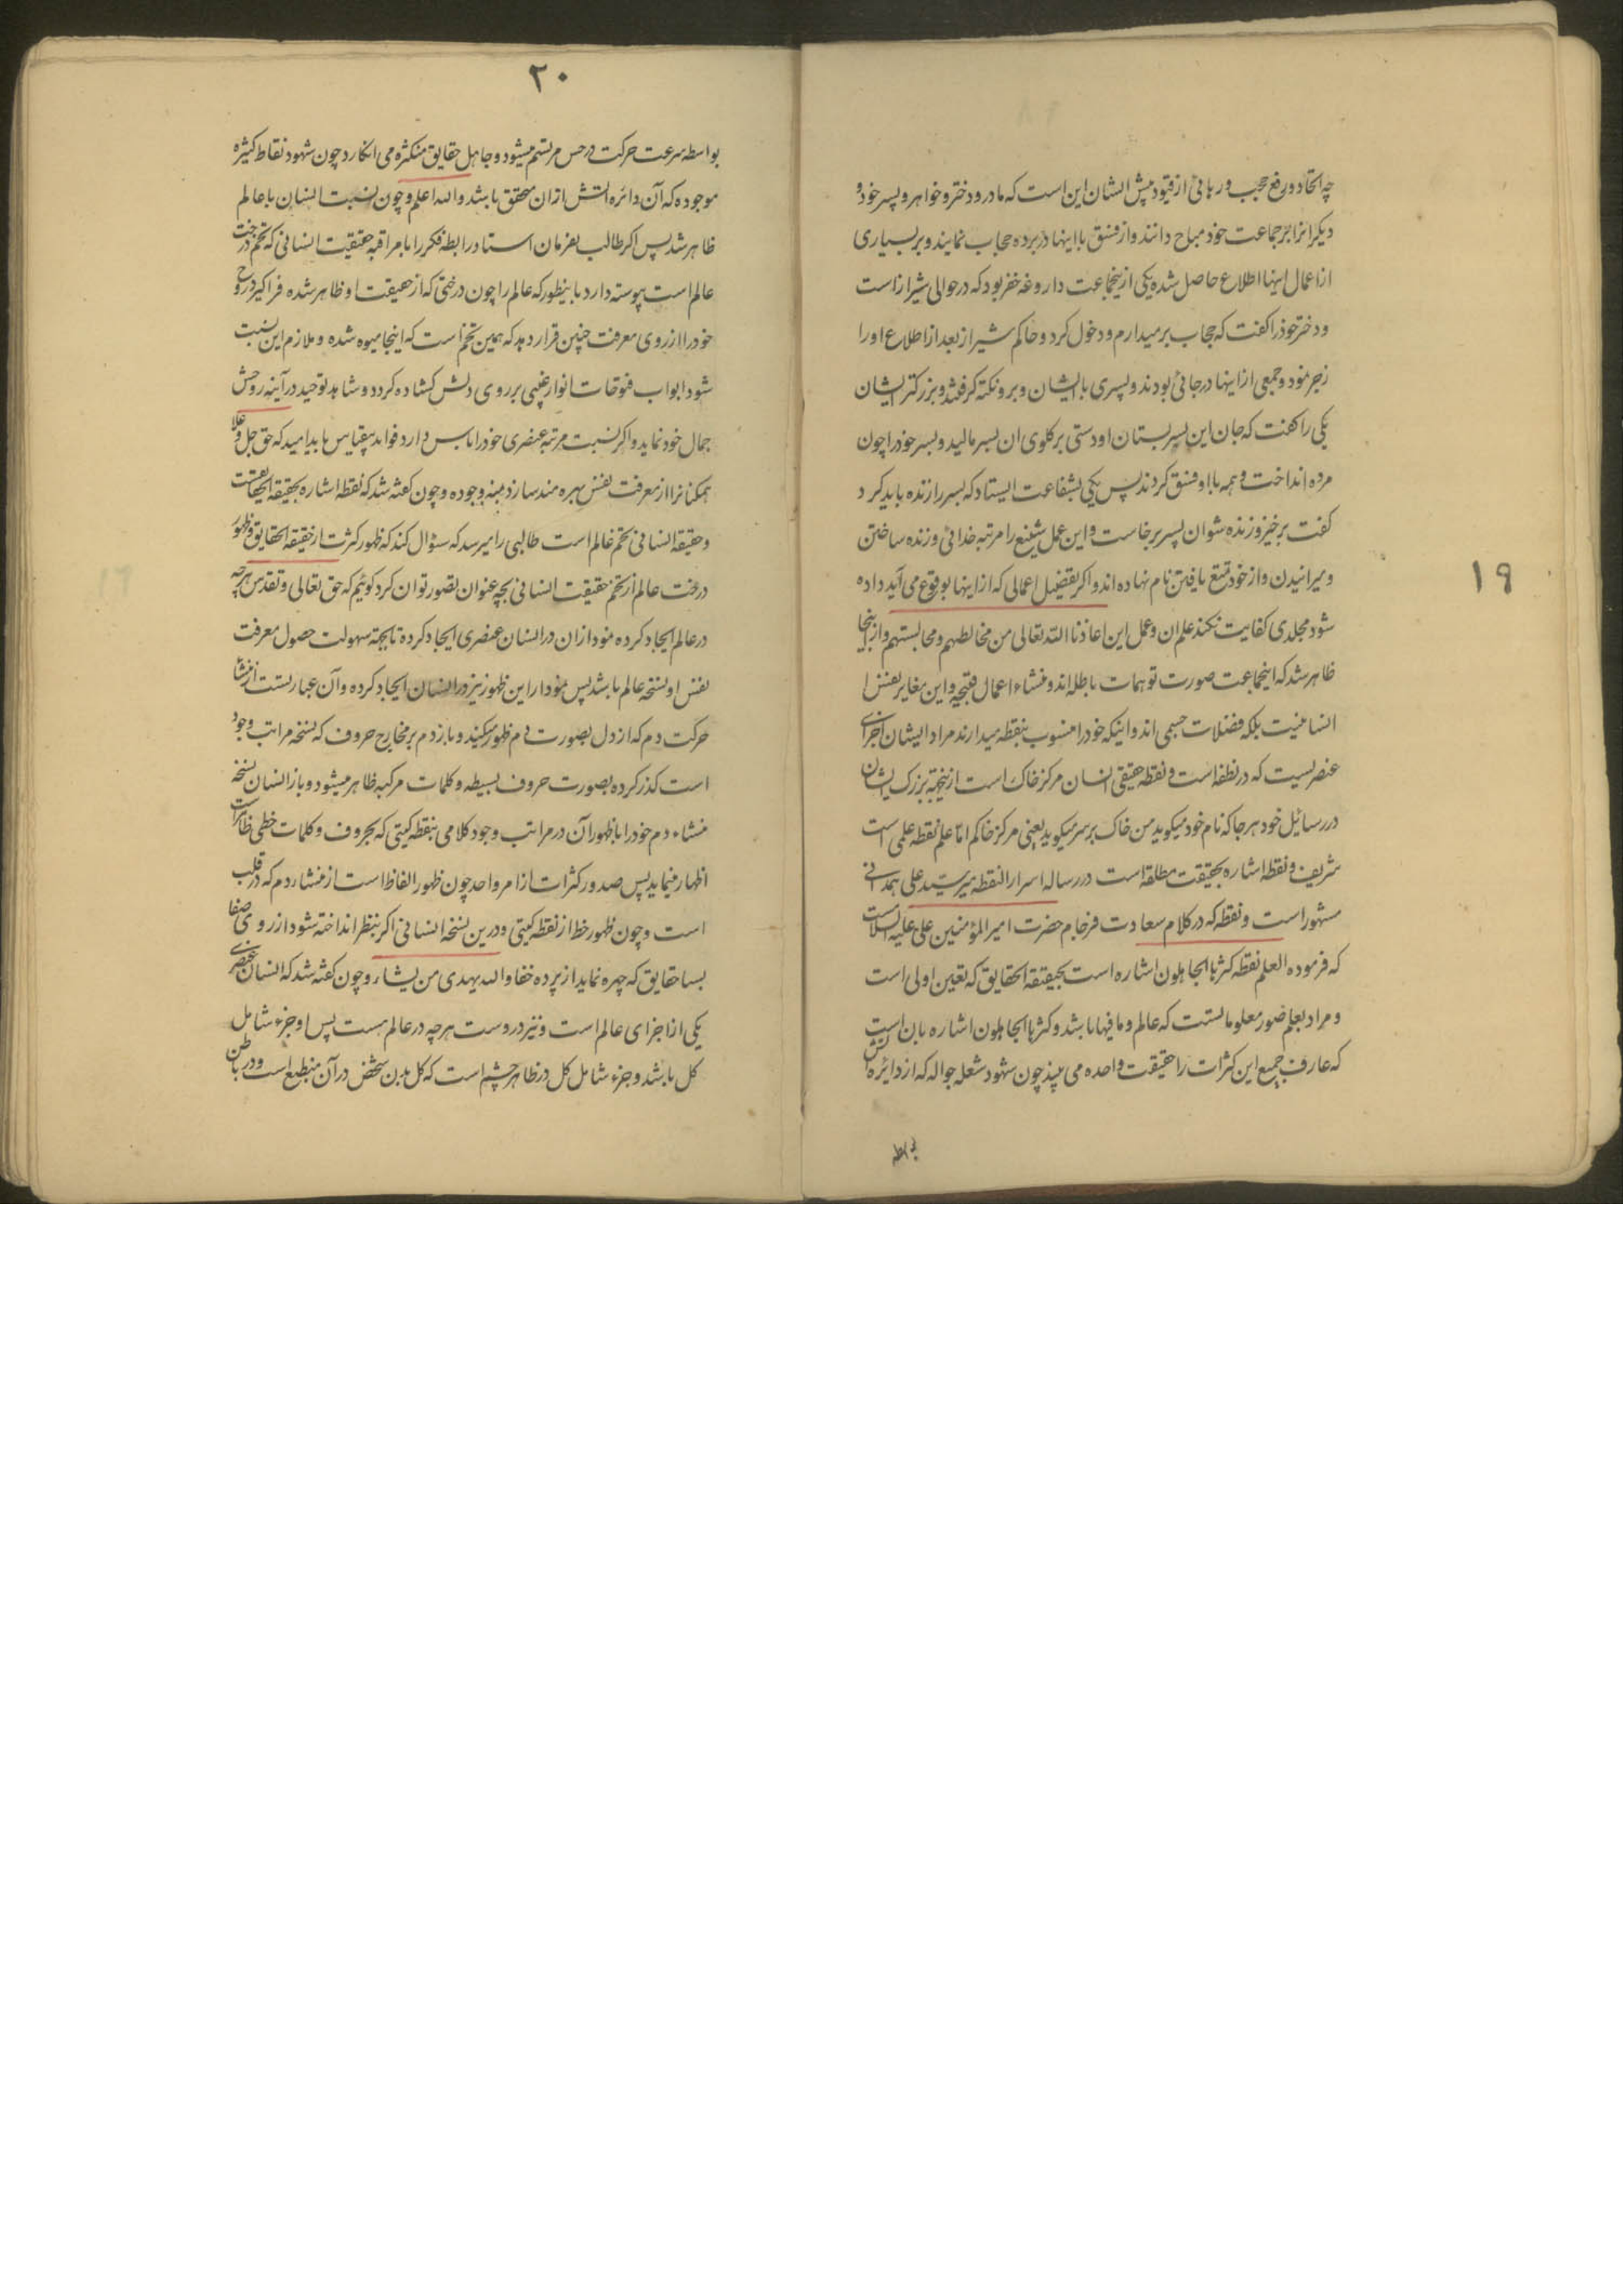 چه اتحاد و رفع حجب و رهائی از قیود پیش ایشان این است که مادر و دختر و خواهر و پسر خود و
دیگرانرا بر جماعت خود مباح دانند و از فسق با اینها در پرده حجاب نمایند و بر بسیاری
از اعمال اینها اطلاع حاصل شده یکی از ینجماعت داروغه خفر بود که در حوالی شیراز است
و دختر خود را گفت که حجاب بر میدارم و دخول کرد و حاکم شیراز بعد از اطلاع او را
زجر نمود و جمعی از اینها در جائی بودند و پسری با ایشان و برو نکته گرفتند و بزرگتر ایشان
یکی را گفت که جان این پسر بستان او دستی بر گلوی ان پسر مالید و پسر خود را چون
مرده انداخت و همه با او فسق کردند پس یکی بشفاعت ایستاد که پسر را زنده باید کرد
گفت برخیز و زنده شو ان پسر برخاست و این عمل شنیع را مرتبه خدائی و زنده ساختن
و میرانیدن و از خود تمتع یافتن نام نهاده اند و اگر تفضیل اعمالی که از اینها بوقوع می آید داده
شود مجلدی کفایت نکند علم ان و عمل این اعاذنا الله تعالی من مخالطهم و مجالستهم و از اینجا
ظاهر شد که اینجماعت صورت توهمات باطله اند و منشاء اعمال قبیحه و این مغایر نفس
انسانیت بلکه فضلات جسمی اند و اینکه خود را منسوب بنقطه میدارند مراد ایشان اجزای
عنصریست که در نطفه است و نقطه حقیقی انسان مرکز خاک است ازینجهة بزرگ ایشان
در رسائل خود هر جا که نام خود میگوید من خاک بر سر میگوید یعنی مرکز خاکم امّا علم نقطه علمی است
شریف و نقطه اشاره بحقیقت مطلقه است در رساله اسرار النقطه میر سید علی همدانی
مشهور است و نقطه که در کلام سعادت فرجام حضرت امیر المؤمنین علی علیه السلامست
که فرموده العلم نقطه کثرها الجاهلون اشاره است بحقیقة الحقایق که تعین اولی است
و مراد بعلم صور معلوماتست که عالم و ما فیها باشد و کثرها الجاهلون اشاره بان است
که عارف جمیع این کثرات را حقیقت واحده می بیند چون شهود شعله جواله که از دایره اتش
بواسطه
۱۹
۲۰
بواسطه سرعت حرکت در حس مرتسم میشود و جاهل حقایق متکثره می انگارد چون شهود نقاط کثیره
موجوده که آن دائره اتش ازان محقق باشد والله اعلم و چون نسبت انسان با عالم
ظاهر شد پس اگر طالب بفرمان استاد رابطه فکر را با مراقبه حقیقت انسانی که تخم درخت
عالم است پیوسته دارد باینطور که عالم را چون درختی که از حقیقت او ظاهر شده فرا گیرد روح
خود را از روی معرفت چنین قرار دهد که همین تخم است که اینجا میوه شده و ملازم این نسبت
شود ابواب فتوحات انوار غیبی بر روی دلش گشاده گردد و شاهد توحید در آینه روحش
جمال خود نماید و اگر نسبت مرتبه عنصری خود را پاس دارد فواید بیقیاس یابد امید که حق جل و علا
همکنانرا از معرفت نفس بهره مند سازد بمنه وجوده و چون گفته شد که نقطه اشاره بحقیقة الحقایقست
و حقیقة انسانی تخم عالم است طالبی را میرسد که سؤال کند که ظهور کثرت از حقیقة الحقایق و ظهور
درخت عالم از تخم حقیقت انسانی بچه عنوان تصور توان کرد گوئیم که حق تعالی و تقدس هر چه
در عالم ایجاد کرده نمودار ان در انسان عنصری ایجاد کرده تا بجهة سهولت حصول معرفت
نفس او نسخه عالم باشد پس نمودار این ظهور نیز در انسان ایجاد کرده و آن عبارتست از منشا
حرکت دم که از دل بصورت دم ظهور میکند و باز دم بر مخارج حروف که نسخه مراتب وجود
است گذر کرده بصورت حروف بسیطه و کلمات مرکبه ظاهر میشود و باز انسان نسخه
منشاء دم خود را با ظهور آن در مراتب وجود کلامی بنقطه کیتی که بحروف و کلمات خطی ظاهرست
اظهار مینماید پس صدور کثرات از امر واحد چون ظهور الفاظ است از منشاء دم که در قلب
است و چون ظهور خط از نقطه کیتی و درین نسخه انسانی اگر بنظر انداخته شود از روی صفا
بسا حقایق که چهره نماید از پرده خفا والله یهدی من یشاء و چون گفته شد که انسان عنصری
یکی از اجزای عالم است و نیز دروست هر چه در عالم هست پس او جزء شامل
کل باشد و جزء شامل کل در ظاهر چشم است که کل بدن شخص در آن منطبع است و در باطن